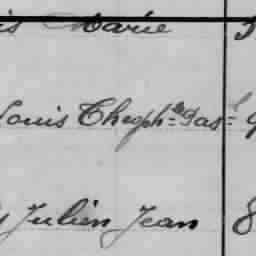 is Marie
Louis Théoph.le Gas.l
Julien Jean 8